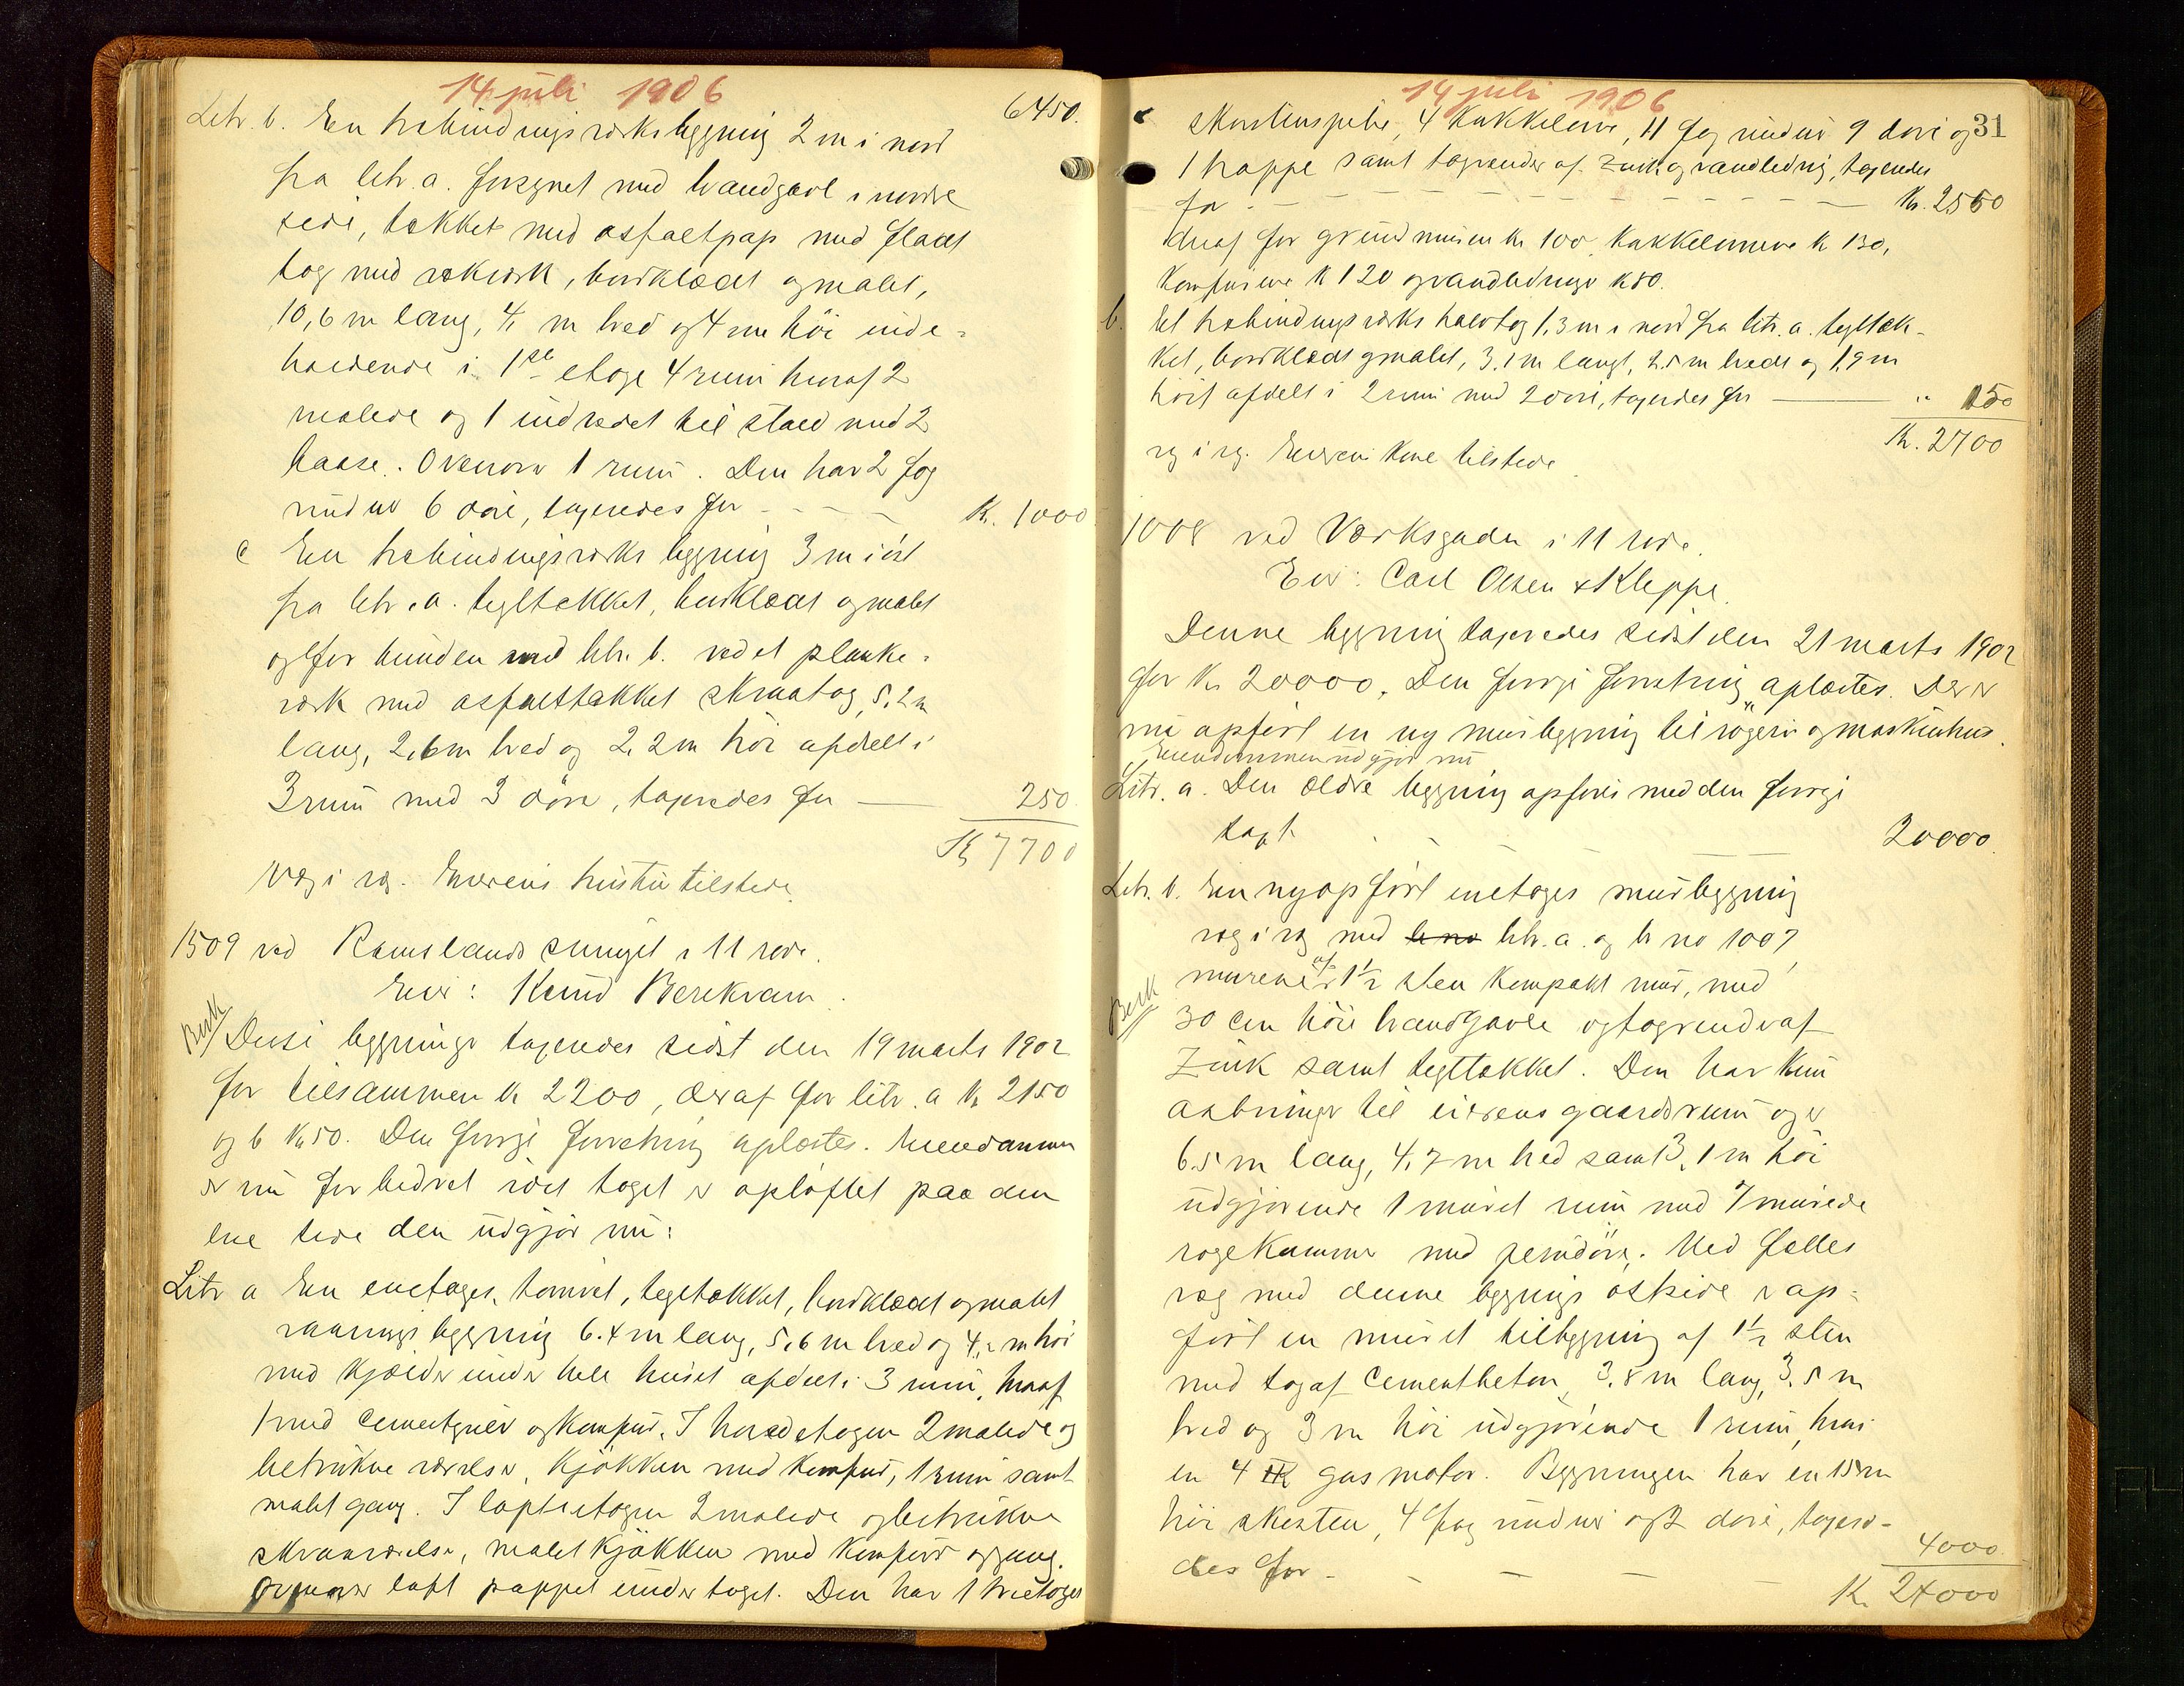 14 juli 1906
6450.
Litr. b. En utbindingsværksbygning 2 m i nord
fra litr. a. forsynet med brandgavl i nordre
side, tækket med asfaltpap med fladt
tag med rækværk, bordklædt og malet,
10,6 m lang, 4,1 m bred og 4 m höi inde-
holdende i 1ste etage 4 rum hvoraf 2
malede og 1 indredet til stald med 2
baase. Ovenover 1 rum. Den har 2 fag
vinduer 6 döre, taxeredes for - - - K. 1000
c En utbindingsværks bygning 3 m i öst
fra litr. a. tegltækket, bordklædt og malet
og forbunden med litr. b. ved et planke-
værk med asfalttækket skraatag, 5,2 m
lang, 2,6 m bred og 2,2 m höi afdelt i
3 rum med 3 döre, taxeredes for — 250
Kr 7700
væg i væg. Eierens hustru tilstede.
1509 ved Ramslands smuget i 11 rode.
Eier: Knud Berekvam.
Besk
Disse bygninger taxeredes sidst den 19 marts 1902
for tilsammen kr 2200, deraf for litr. a kr 2150
og b kr 50. Den forrige forretning oplæstes. Eiendommen
er nu forbedret idet taget er opløftet paa den
ene side den udgjör nu:
Litr a En enetages, tømret, tegltækket, bordklædt og malet
vaaningsbygning 6.4 m lang, 5,6 m bred og 4,2 m höi
med kjælder under hele huset afdelt i 3 rum, hvoraf
1 med cementgulv og komfur. I hovedetagen 2 malede og
betrukne værelser, kjökken med komfur, 1 rum samt
malet gang. I loftsetagen 2 malede og betrukne
skraaværelser, malet kjökken med komfur og gang.
Ovenover loft pappet under taget. Den har 1 tretages
14 juli 1906
31
skorstenspibe, 4 kakkelovne, 11 fag vinduer 9 döre og
1 trappe samt tagrender af zink og vandledning, taxeredes
for - - - Kr. 2550
deraf for grundmuren kr 100, kakkelovnene k 130,
komfurene k 120 og vandledninger k 80.
b. Et utbindingsværks halvtag 1,3 m i nord fra litr. a. tegltæk-
ket, bordklædt og malet, 3.1 m langt, 2.5 m bredt og 1,9 m
höit afdelt i 2 rum med 2 döre, taxeredes for — " 150
Kr. 2700
væg i væg. Eierens kone tilstede
1008 ved Værksgaden i 11 rode.
Eier: Carl Olsen & Kleppe.
Denne bygning taxeredes sidst den 21 marts 1902
for Kr 20000. Den forrige forretning oplæstes. Der er
nu opfört en ny murbygning til røgeri og maskinhus.
Eiendommen udgjör nu
Litr. a. Den ældre bygning opføres med den forrige
taxt. - - - 20000.
Litr. b. En nyopfört enetages murbygning
væg i væg med br no litr. a. og br no 1007,
murene er af 1½ sten kompakt mur, med
Besk
30 cm höie brandgavle og tagrender af
zink samt tegltækket. Den har kun
aabninger til eierens gaardsrum og er
6.5 m lang, 4,7 m bred samt 3,1 m höi
udgjörende 1 muret rum med 7 murede
rögekammer med jerndöre. Med fælles
væg med denne bygnings østside er op-
fört en muret tilbygning af 1½ sten
med tag af cementbeton, 3,8 m lang, 3.5 m
bred og 3 m höi udgjörende 1 rum, hvori
en 4 HK gasmotor. Bygningen har en 15 m
höi skorsten, 4 fag vinduer og 2 döre, taxere-
des for - - - 4000
K. 24000